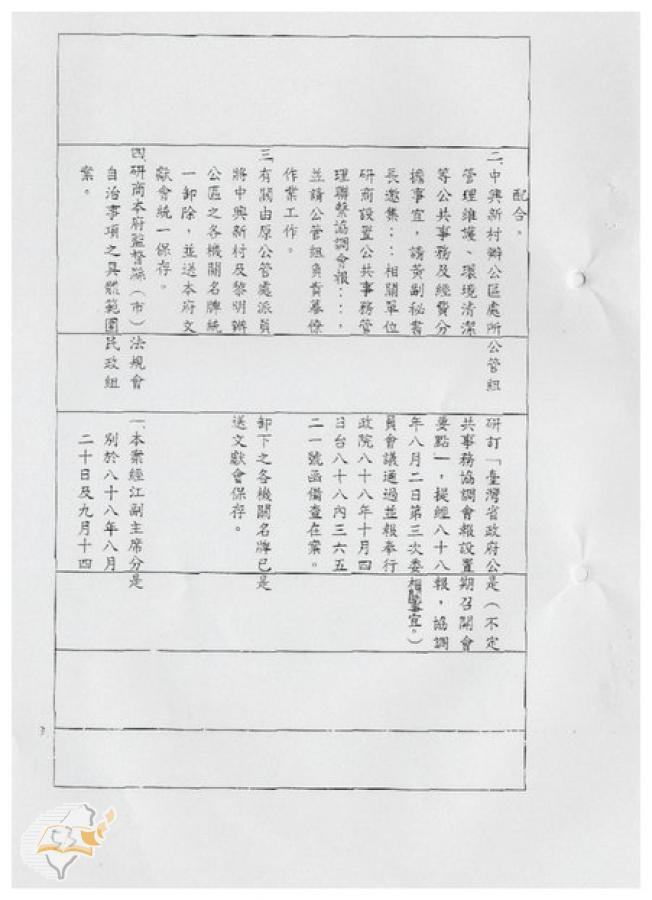 配合。
二、中興新村辦公區處所
管理維護、環境清潔
等公共事務及經費分
擔事宜，請黃副秘書
長邀集：：相關單位
研商設置公共事務管
理聯繫協調會報：：，
並請公管組負責幕僚
作業工作。
三、有關由原公管處派員
將中興新村及黎明辦
公區之各機關名牌統
一卸除，並送本府文
獻會統一保存。
四、研商本府監督縣（市）
自治事項之具體範圍
案。
公管組
法規會
民政組
研訂「臺灣省政府公
共事務協調會報設置
要點」，提經八十八
年八月二日第三次委
員會議通過並報奉行
政院八十八年十月四
日台八十八內三六五
二一號函備查在案。
卸下之各機關名牌已
送文獻會保存。
一、本案經江副主席分
別於八十八年八月
二十日及九月十四
是（不定
期召開會
報，協調
相關事宜。）
是
是